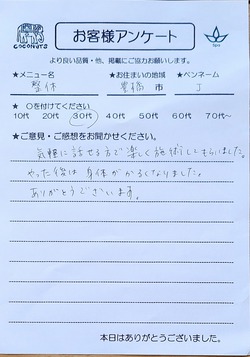 COCONUTS
お客様アンケート
Spa
より良い品質・他、掲載にご協力お願いします。
★メニュー名 ★お住まいの地域 ★ペンネーム
整体 豊橋 市 J
★ ○を付けてください
10代 20代 30代 40代 50代 60代 70代~
★ご意見・ご感想をお聞かせください。
気軽に話せる方で楽しく施術してもらいました。
やった後は身体がかるくなりました。
ありがとうございます。
本日はありがとうございました。